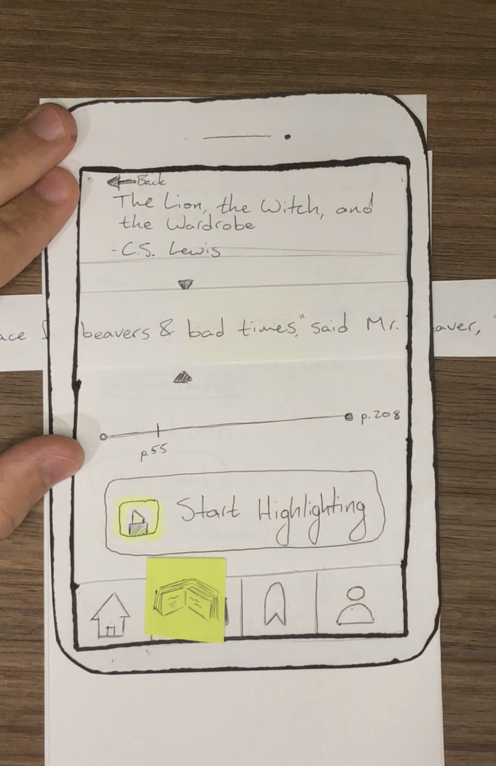 Back
The Lion, the Witch, and
the Wardrobe
-C.S. Lewis
beavers & bad times," said Mr. eaver,
p.208
p55
Start Highlighting